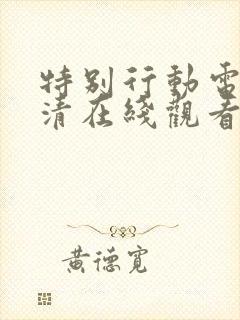 特别行動電
清在綫觀看
黃德寬